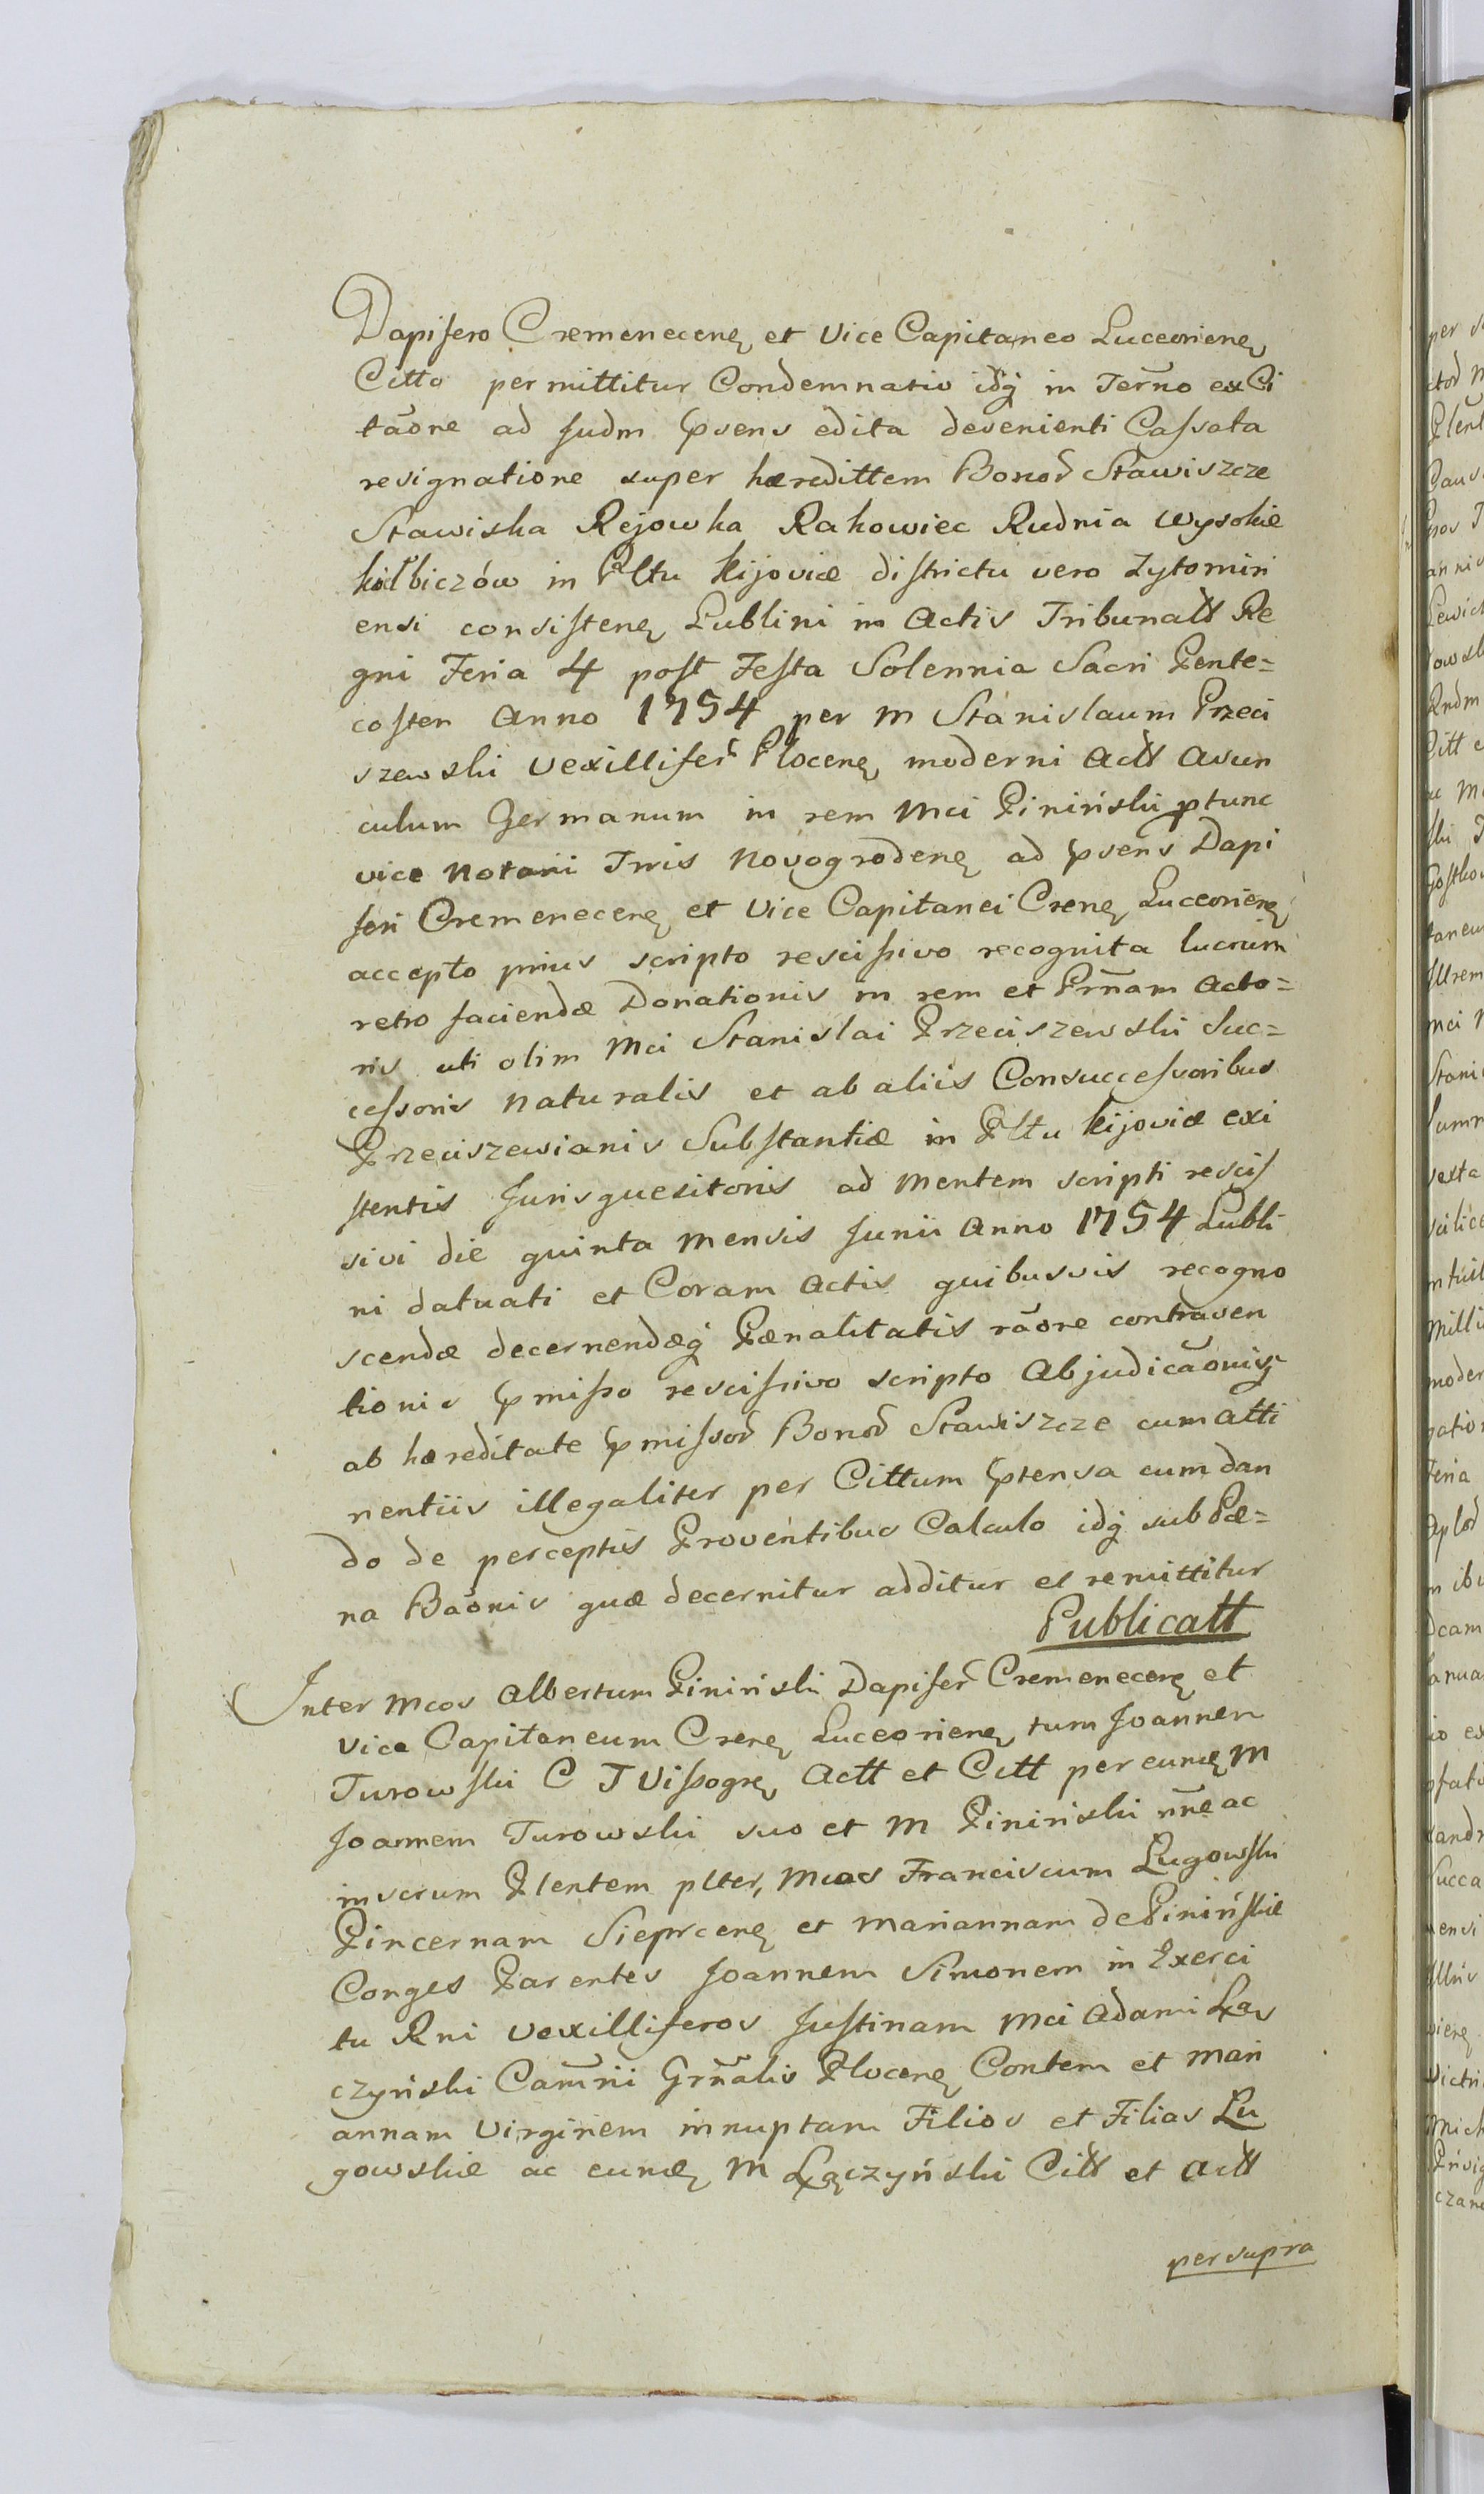 Dapifero Cremenecenę et Vice Capitaneo Luceorienę
Citto permittitur Condemnatio idq̃ in Termno ex Ci
tãone ad Judm Pṕsens edita devenienti Cassata
resignatione super hæredittem Bonoꝝ Stawiszcze
Stawiska Rejowka Rahowiec Rudnia Wysokie
kiełbiczów in Pltu Kijoviæ districtu vero Zytomiri
ensi consistenę Lublini in Actis Tribunatt Re
gni Feria 4 post Festa Solennia Sacri Pente=
costen Anno 1754 per M Stanislaum Przeci
szewski Vexillifer̃ Plocenę moderni Actt Avun
culum Germanum in rem Mci Piniński ptunc
vice Notarii Trris Novogrodenę ad pṕsens Dapi
feri Cremenecenę et Vice Capitanei Crenę Luceorienę
accepto prius scripto rescissivo recognita lucrum
retro faciendæ Donationis in rem et Prñam Acto=
ris uti olim Mci Stanislai Przeciszewski Suc=
cessoris Naturalis et ab aliis Consuccessoribus
Przeciszewianis Substantiæ in Pltu Kijoviæ exi
stentis Jurisquesitoris ad mentem scripti rescis
sivi die quinta Mensis Junii Anno 1754 Lubli
ni datuati et Coram Actis quibusvis recogno
scendæ decernendæq̃ Pænalitatis rãone contraven
tionis pmisso rescissivo scripto Abjudicãonisq̃
ab hæreditate pmissoꝝ Bonoꝝ Stawiszcze cum Atti
nentiis illegaliter per Cittum ptensa cum dan
do de perceptis Proventibus Calculo idq̃ sub Pæ=
na Bãonis quæ decernitur additur et remittitur
Publicatt
Inter Mcos Albertum Piniński Dapifer̃ Cremenecenę et
Vice Capitaneum Crenę Luceorienę tum Joannem
Turowski C T Vissogrę Actt et Citt per eundę M
Joannem Turowski suo et M Pinińskii nñe ac
in verum Plentem plter, Mcos Franciscum Lugowski
Pincernam Sieprcenę et Mariannam de Pinińskie
Conges Parentes Joannem Simonem in Exerci
tu Rni Vexilliferos Justinam Mci Adami Łą
czyński Camr̃ii Grñalis Plocenę Contem et Mari
annam Virginem innuptam Filios et Filias Lu
gowskie ac eundę M Łączyński Citt et Actt
per supra